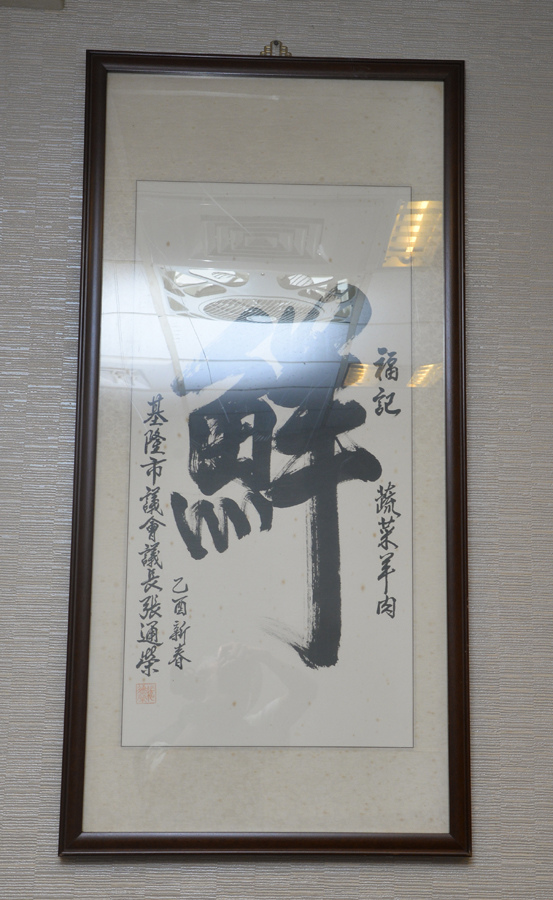 福記 蔬菜羊肉
鮮
乙酉新春
基隆市議會議長張通榮